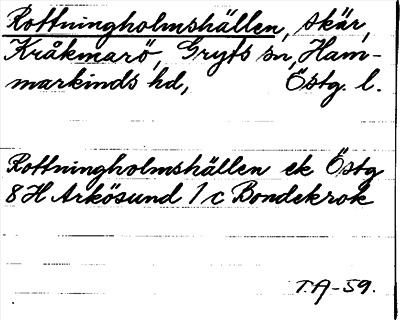 Rottningholmshällen, skär,
Kråkmarö, Gryts sn, Ham-
markinds hd, Östg. l.
Rottningholmshällen ek Östg
8 H Arkösund 1 c Bondekrok
T.A-59.